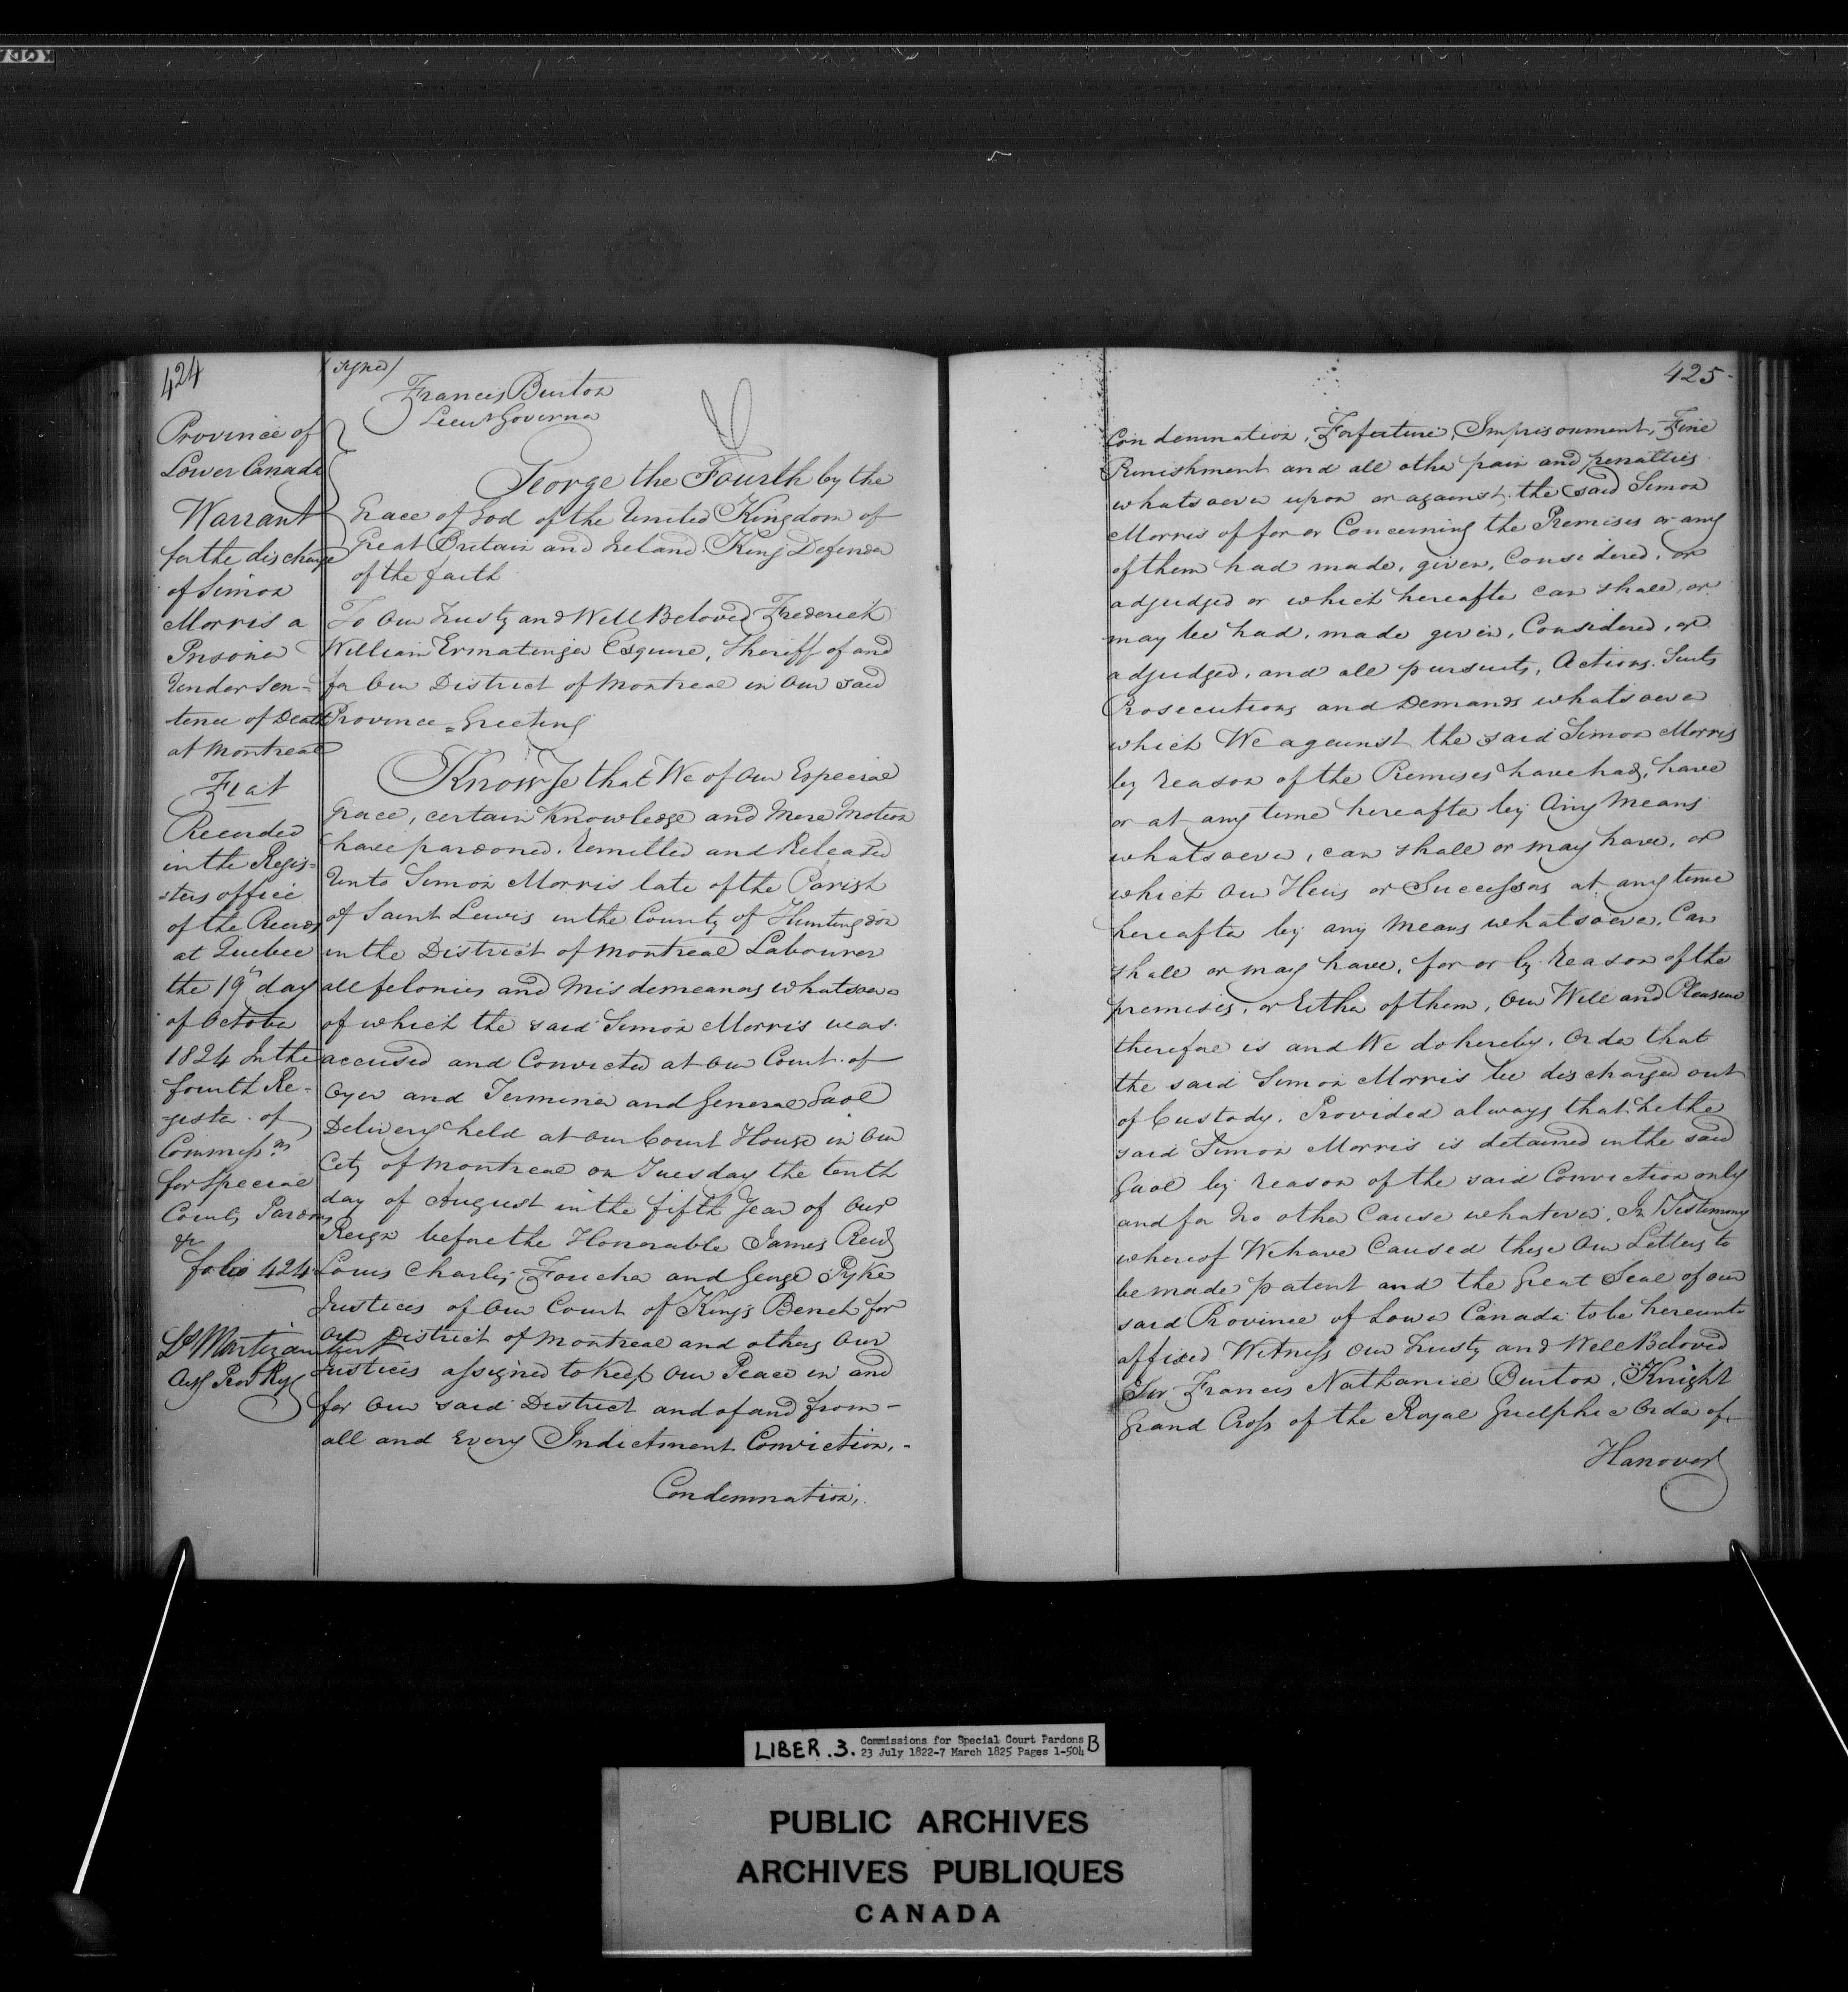 424
Province of
Lower Canada
Warrant
for the discharge
of Simon
Morris a
Prisoner
Under Sen=
tence of Death
at Montreal
Fiat
Recorded
in the Regis=
ters office
of the Records
at Quebec
the 19th day
of October
1824 In the
fourth Re-
gister of
Commissns
for Special
Courts Pardons
&c
folio 424
Assr Prov Regr
(signed)
Francis Burton
Lieut Governor
George the Fourth by the
Grace of God of the United Kingdom of
Great Britain and Ireland King Defender
of the faith
To Our Trusty and Well Beloved Frederick
William Ermatinger Esquire, Sheriff of and
for Our District of Montreal in Our said
Province = Greeting
Know Ye that We of Our Especial
Grace, certain Knowledge and Mere Motion
have pardoned. Remitted and Released
Unto Simon Morris late of the Parish
of Saint Lewis in the County of Huntingdon
in the District of Montreal Labourer
all felonies and Misdemeanors whatsoever
of which the said Simon Morris was
accused and Convicted at Our Court of
Oyer and Terminer and General Gaol
Delivery held at Our Court House in Our
City of Montreal on Tuesday the tenth
day of August in the fifth Year of Our
Reign before the Honorable James Reid
Louis Charles Foucher and George Pyke
Justices of Our Court of King's Bench for
Our District of Montreal and others Our
Justices assigned to Keep Our Peace in and
for Our said District and of and from -
all and Every Indictment Conviction, -
Condemnation,
425
Condemnation, Forfeiture, Imprisonment, Fine
Punishment and all other pain and penalties
whatsoever upon or against the said Simon
Morris of for or Concerning the Premises or any
of them had made, given, Considered, or
adjudged or which hereafter can shall, or
may be had, made given, Considered, or
adjudged, and all pursuits, Actions, Suits
Prosecutions and Demands whatsoever
which We against the said Simon Morris
by reason of the Premises have had, have
or at any time hereafter by Any Means
whatsoever, can shall or may have, or
which Our Heirs or Successors at any time
hereafter by any Means whatsoever, Can
shall or may have, for or by Reason of the
premises, or Either of them, Our Will and Pleasure
therefore is and We do hereby, Order that
the said Simon Morris be discharged out
of Custody. Provided always that he the
said Simon Morris is detained in the said
Gaol by reason of the said Conviction only
and for no other Cause whatever, In Testimony
whereof We have Caused these Our Letters to
be made patent and the Great Seal of our
said Province of Lower Canada to be hereunto
affixed Witness Our Trusty and Well Beloved
Sir Francis Nathaniel Burton, Knight
Grand Cross of the Royal Guelphic Order of
Hanover
LIBER. 3. Commissions for Special Court Pardons B
23 July 1822-7 March 1825 Pages 1-504
PUBLIC ARCHIVES
ARCHIVES PUBLIQUES
CANADA